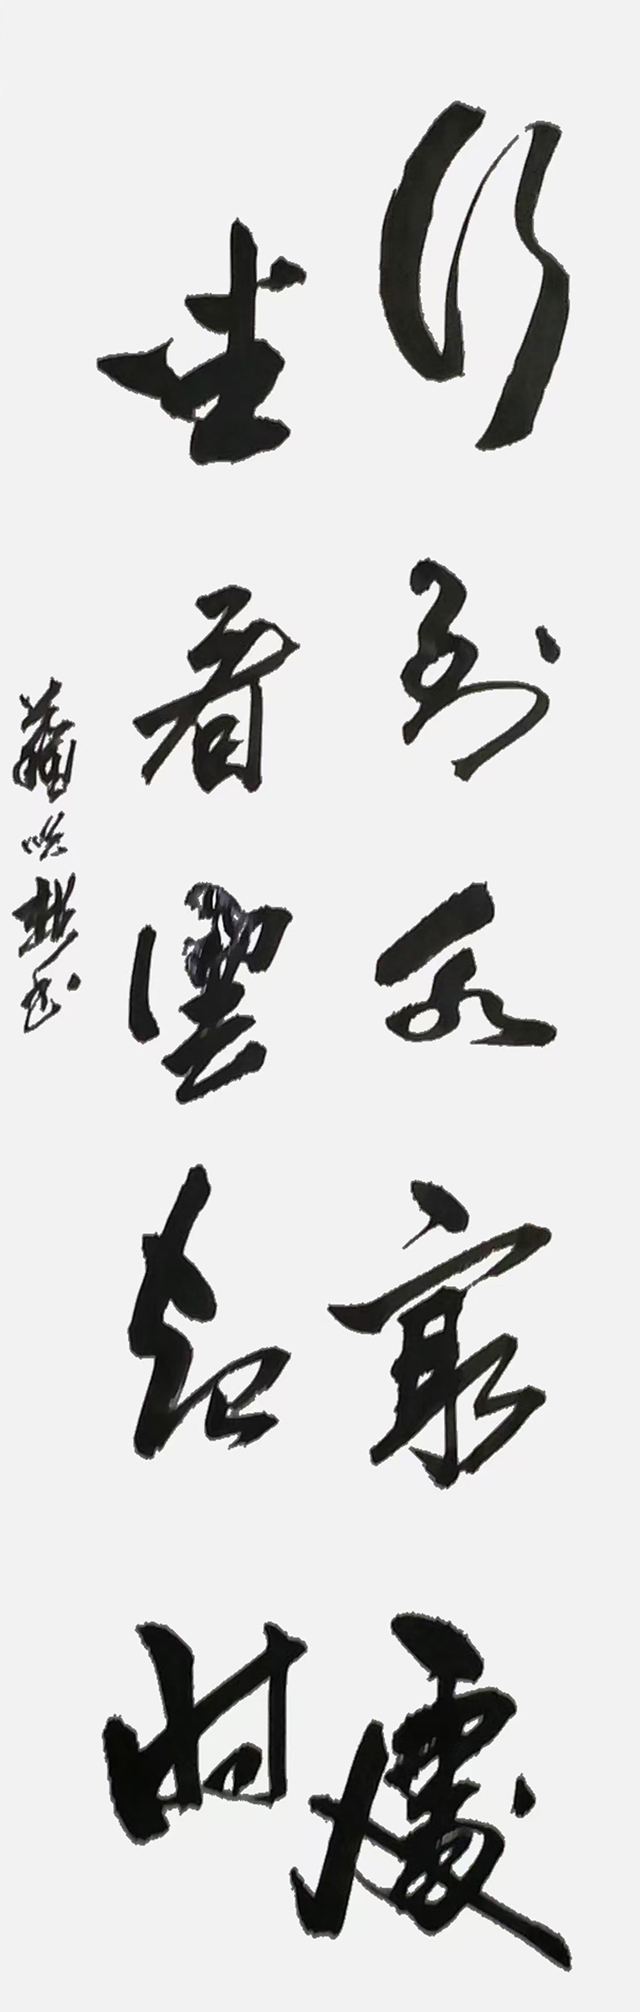 行到水窮處
坐看雲起時
书